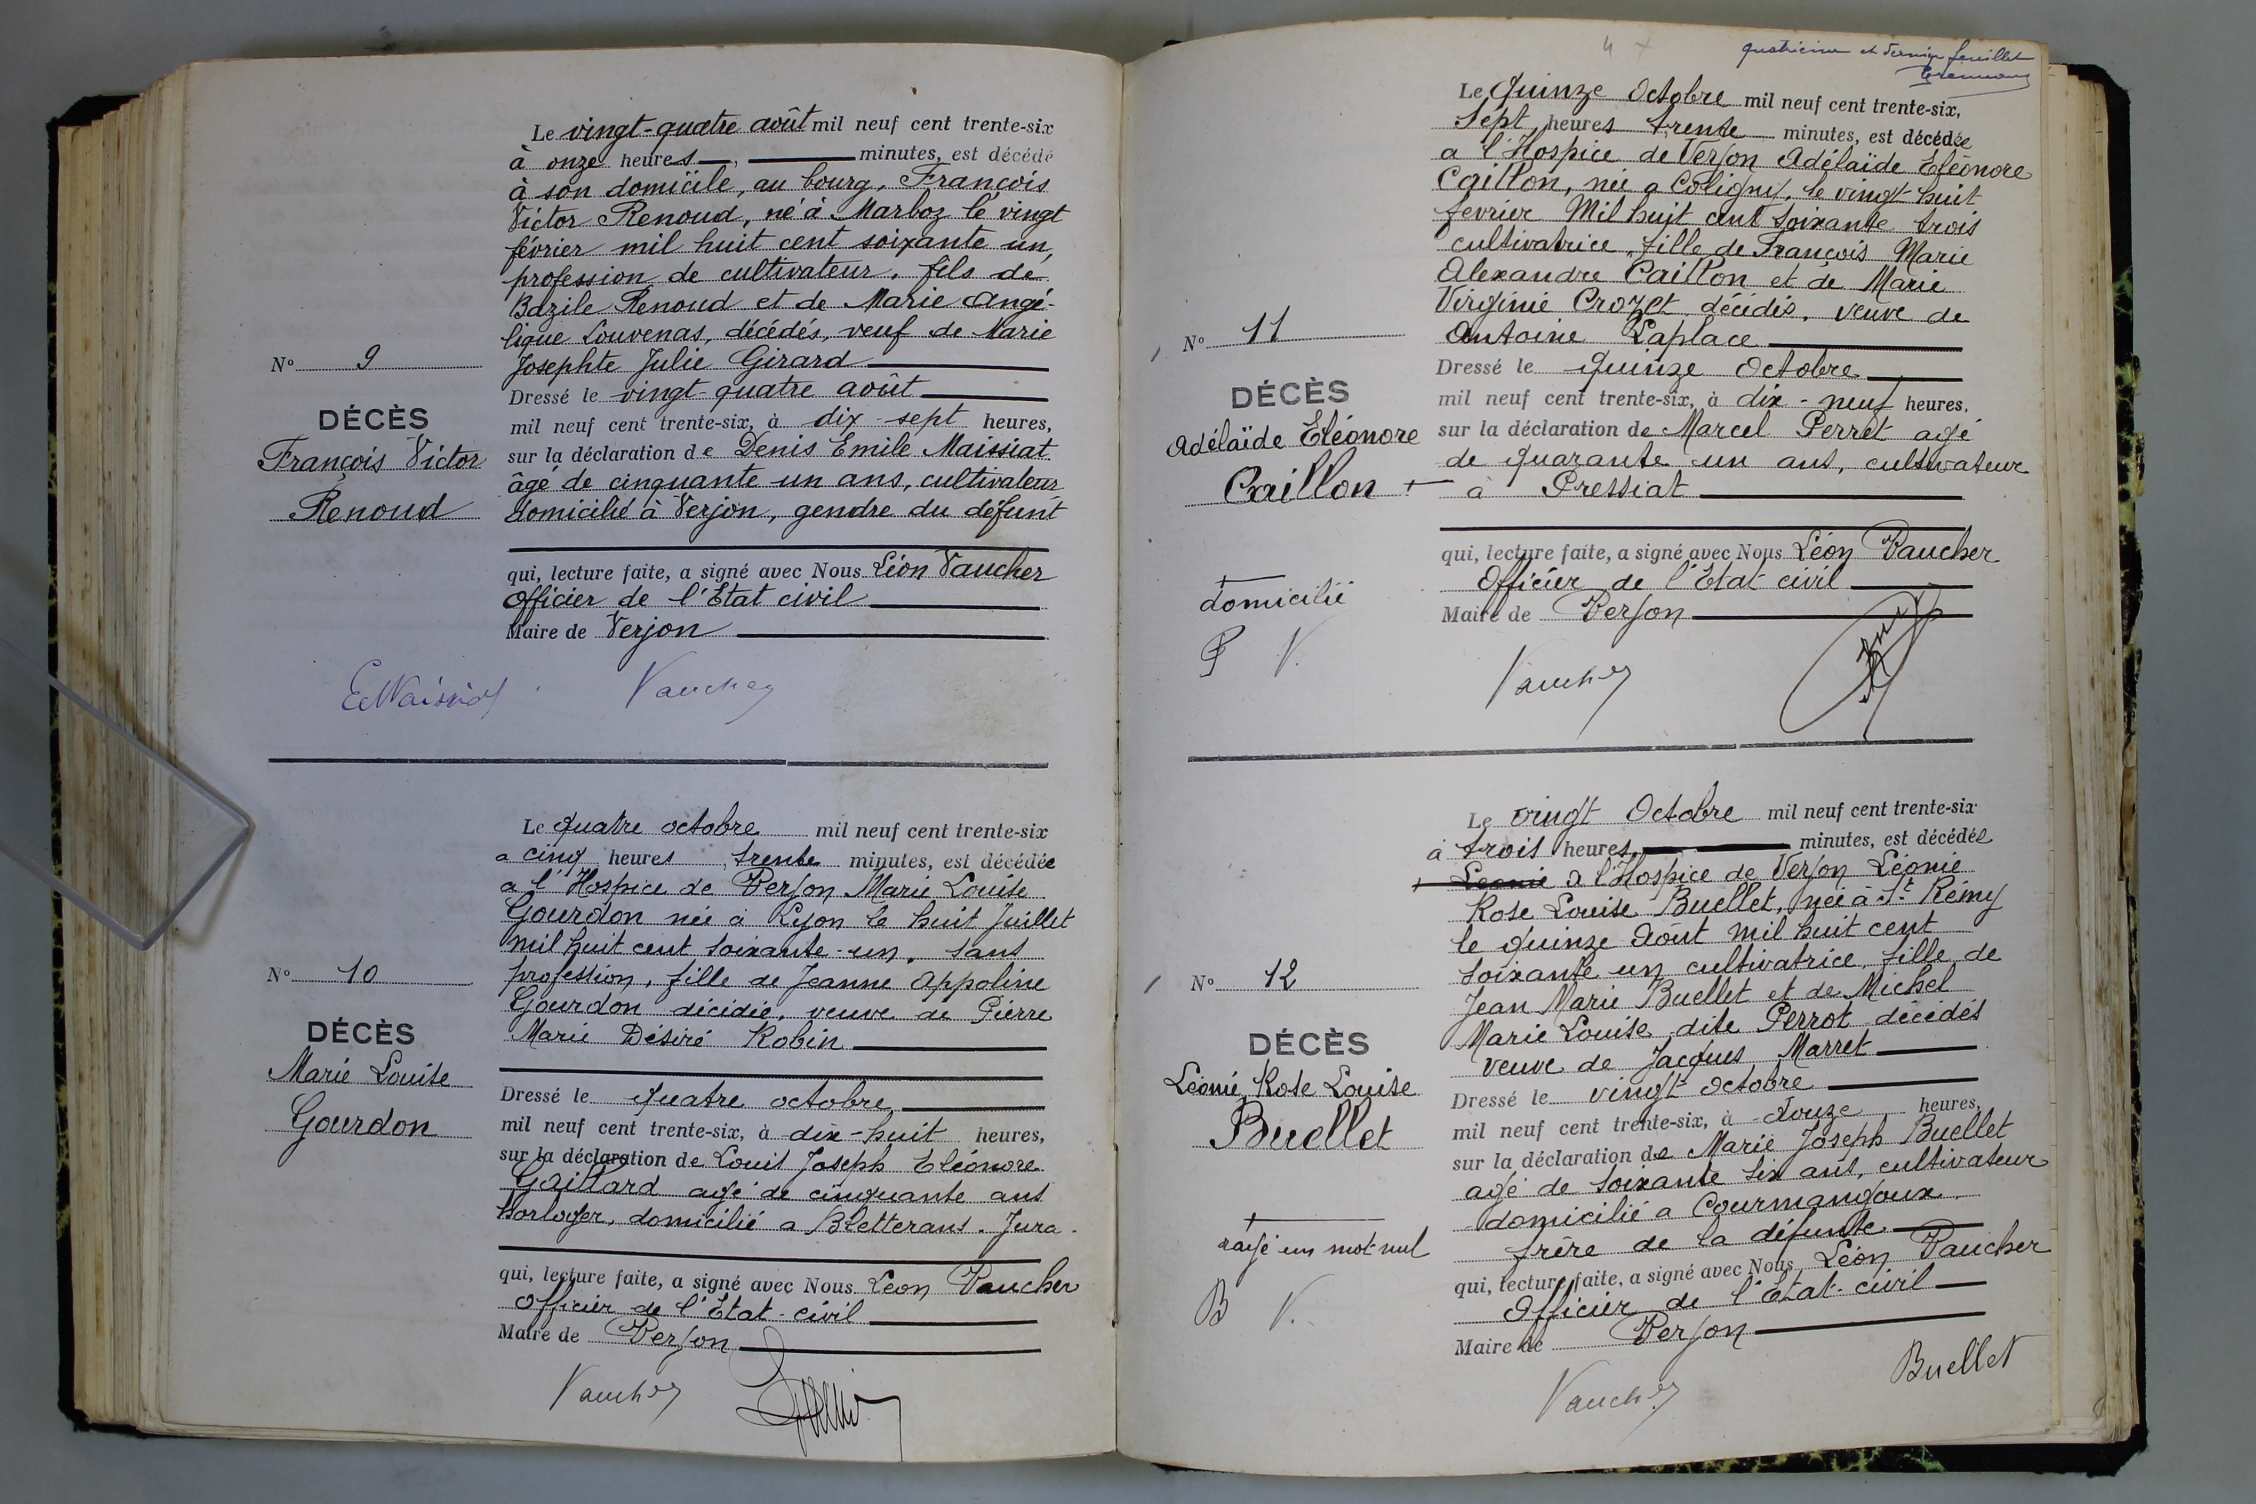 Le vingt-quatre août mil neuf cent trente-six
à onze heures, minutes, est décédé
à son domicile, au bourg, François
Victor Renoud, né à Marboz le vingt
février mil huit cent soixante un,
profession de cultivateur, fils de
Bazile Renoud et de Marie Angé-
lique Louvenas, décédés, veuf de Marie
Josephte Julie Girard
N° 9
DÉCÈS
François Victor
Renoud
Dressé le vingt-quatre août
mil neuf cent trente-six, à dix-sept heures,
sur la déclaration de Denis Emile Maissiat
âgé de cinquante un ans, cultivateur
domicilié à Verjon, gendre du défunt
qui, lecture faite, a signé avec Nous Léon Vaucher
Officier de l'Etat civil
Maire de Verjon
E Maissiat Vaucher
Le quatre octobre mil neuf cent trente-six
a cinq heures trente minutes, est décédée
a l'Hospice de Verjon Marie Louise
Gourdon née à Lyon le huit Juillet
mil huit cent soixante-un, sans
profession, fille de Jeanne Appoline
Gourdon décédée, veuve de Pierre
Marie Désiré Robin
N° 10
DÉCÈS
Marie Louise
Gourdon
Dressé le quatre octobre
mil neuf cent trente-six, à dix-huit heures,
sur la déclaration de Louis Joseph Eléonore
Gaillard agé de cinquante ans
horloger, domicilié a Bletterans. Jura.
qui, lecture faite, a signé avec Nous Léon Vaucher
Officier de l'Etat-civil
Maire de Verjon
Vaucher
4
quatrième et dernier feuillet
Le Quinze Octobre mil neuf cent trente-six,
Sept heures trente minutes, est décédée
a l'Hospice de Verjon Adélaïde Eléonore
Caillon, née a Coligny, le vingt huit
fevrier Mil huit cent soixante trois
cultivatrice, fille de François Marie
Alexandre Caillon et de Marie
Virginie Crozet décédés, veuve de
Antoine Laplace
N° 11
DÉCÈS
Adélaïde Eléonore
Caillon
Dressé le quinze Octobre
mil neuf cent trente-six, à dix-neuf heures.
sur la déclaration de Marcel Perret agé
de quarante un ans, cultivateur
+ à Pressiat
qui, lecture faite, a signé avec Nous Léon Vaucher
Officier de l'Etat-civil
Maire de Verjon
domicilié
P V.
Vaucher
Le vingt Octobre mil neuf cent trente-six
à trois heures minutes, est décédée
Léonie à l'Hospice de Verjon Léonie
Rose Louise Buellet, née à St Rémy
le quinze Août mil huit cent
soixante un cultivatrice, fille de
Jean Marie Buellet et de Michel
Marie Louise dite Perrot décédés
veuve de Jacques Marret
N° 12
DÉCÈS
Léonie Rose Louise
Buellet
Dressé le vingt octobre
mil neuf cent trente-six, à douze heures,
sur la déclaration de Marie Joseph Buellet
agé de soixante six ans, cultivateur
domicilié a Courmangoux
frère de la défunte
qui, lecture faite, a signé avec Nous Léon Vaucher
Officier de l'Etat-civil
Maire de Verjon
rayé un mot nul
B V.
Vaucher Buellet